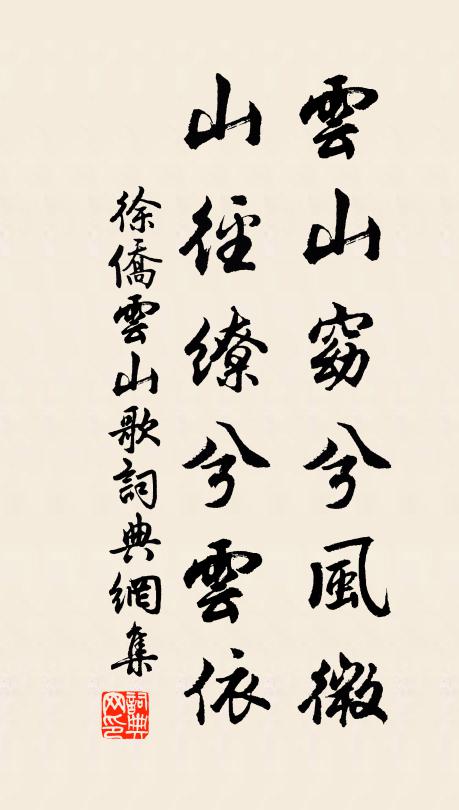 雲山窈兮風微
山徑繚兮雲依
徐僑雲山歌詞典網集
詞典網印